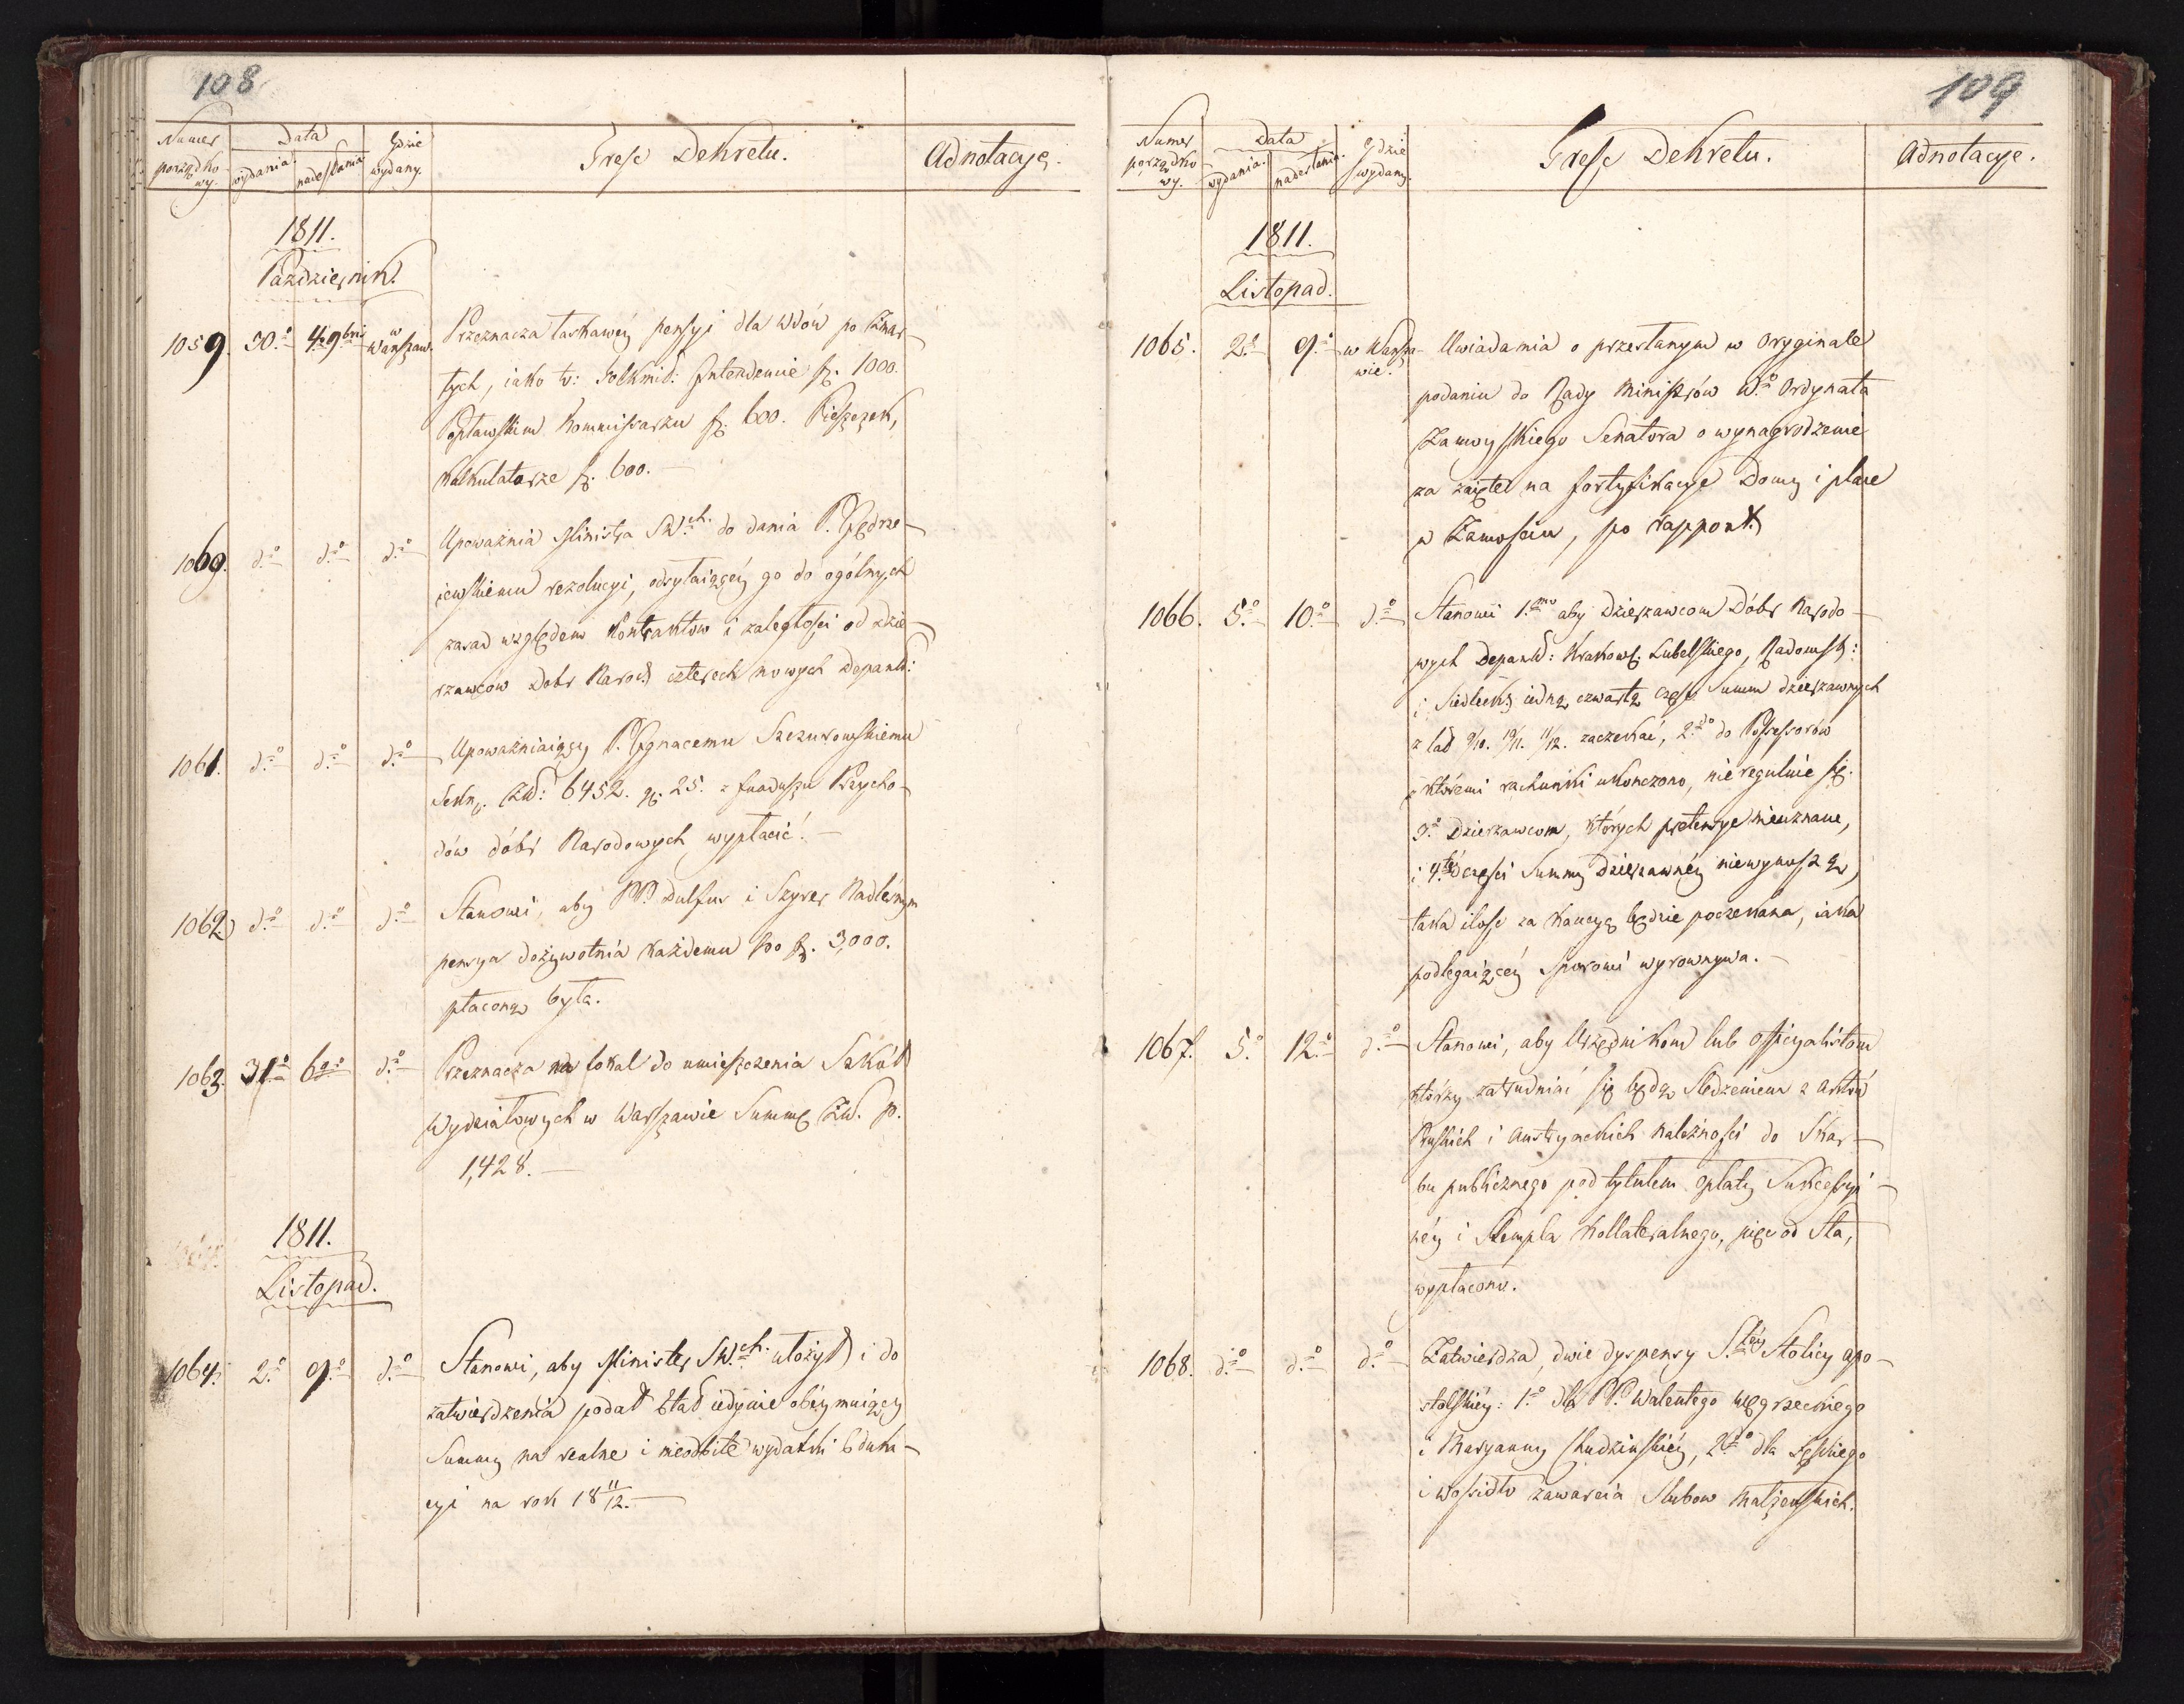 108
Numer porządkowy. Data wydania. nadesłania Gdzie wydany. Treść Dekretu. Adnotacye.
1811.
Październik.
1059. 30.º 4. 9bris w Warszaw. Przeznacza łaskawéy pensyi dla Wdów po Zmar-
tych, iako to: Intendencie fl. 1000.
Popławskim Kommissarzu fl. 600. Pieszczek,
Kalkulatorze fl. 600. —
1060. d.º d.º d.º Upoważnia Ministra SW.ch do dania P. Jędrze-
iewskiemu rezolucyi, odsyłaiącéy go do ogólnych
zasad względem Kontraktów i zaległości od dzie-
rzawcow Dobr Narod. czterech nowych Depart:
1061. d.º d.º d.º Upoważniaiący P. Ignacemu Szczurowskiemu
6452. gr. 25. z funduszu Przycho-
dów dóbr Narodowych wypłacić. —
1062. d.º d.º d.º Stanowi, aby PP. Dulfus i Szyrer Nadleśnym
pensya dożywotnia każdemu po fl. 3,000.
płaconą była.
1063. 31.º 6.º d.º Przeznacza na lokal do umieszczenia Szkół
Wydziałowych w Warszawie Summę Zł. p.
1,428. —
1811.
Listopad.
1064. 2.º 9.º d.º Stanowi, aby Minister SW.ch ułożył i do
zatwierdzenia podał Etat iedynie obéymuiący
Summy na realne i nieodbite wydatki Eduka-
cyi na rok 18 11/12. —
109
Numer porządkowy. Data wydania. nadesłania. Gdzie wydany. Treść Dekretu. Adnotacye.
1811.
Listopad.
1065. 2.º 9.º w Warszawie. Uwiadamia o przesłanym w Oryginale
podaniu do Rady Ministrów W.º Ordynata
Zamoyskiego Senatora o wynagrodzenie
za zaięte na fortyfikacye Domy i place
w Zamościu, po rapport.
1066. 5.º 10.º d.º Stanowi 1.mo aby Dzierzawcom Dóbr Narodo-
wych Depart: Krakows. Lubelskiego, Radomsk:
i Siedleck. iedną czwartą część Summ dzierzawnych
z lat 9/10. 10/11. 11/12. zaczekać, 2.do do Possessorów
z któremi rachunki ukończono, nie reguluie się.
3.º Dzierzawcom, których pretensye nieuznane,
i 4.téy części Summy Dzierzawnéy niewynoszą,
taka ilość za Kaucyą będzie poczekana, iaka
podlegaiącéy Sporowi wyrownywa. —
1067. 5.º 12.º d.º Stanowi, aby Urzędnikom lub officyalistom
którzy zatrudniać się będą śledzeniem z Aktów
Pruskich i Austryackich należności do Skar-
bu publicznego pod tytułem opłaty Sukcessyi-
néy i Stempla Kollateralnego, pięć od Sta,
wypłacono.
1068. d.º d.º d.º Zatwierdza, dwie dyspensy S.téy Stolicy apo-
stolskiéy: 1.º dla PP. Walentego Węgrzeckiego
i Maryanny Chudzińskiéy, 2.do dla Łęskiego
i Wossidło zawarcia Slubow Małzeńskich.